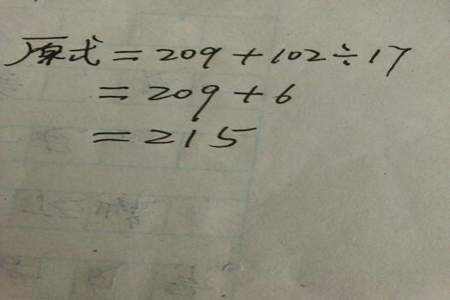 原式=209+102÷17
=209+6
=215